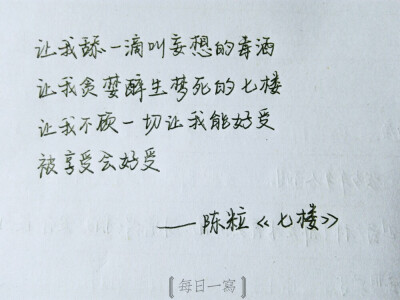 让我舔一滴叫妄想的毒酒
让我贪婪醉生梦死的七楼
让我不顾一切让我能好受
被享受会好受
——陈粒《七楼》
【每日一寫】